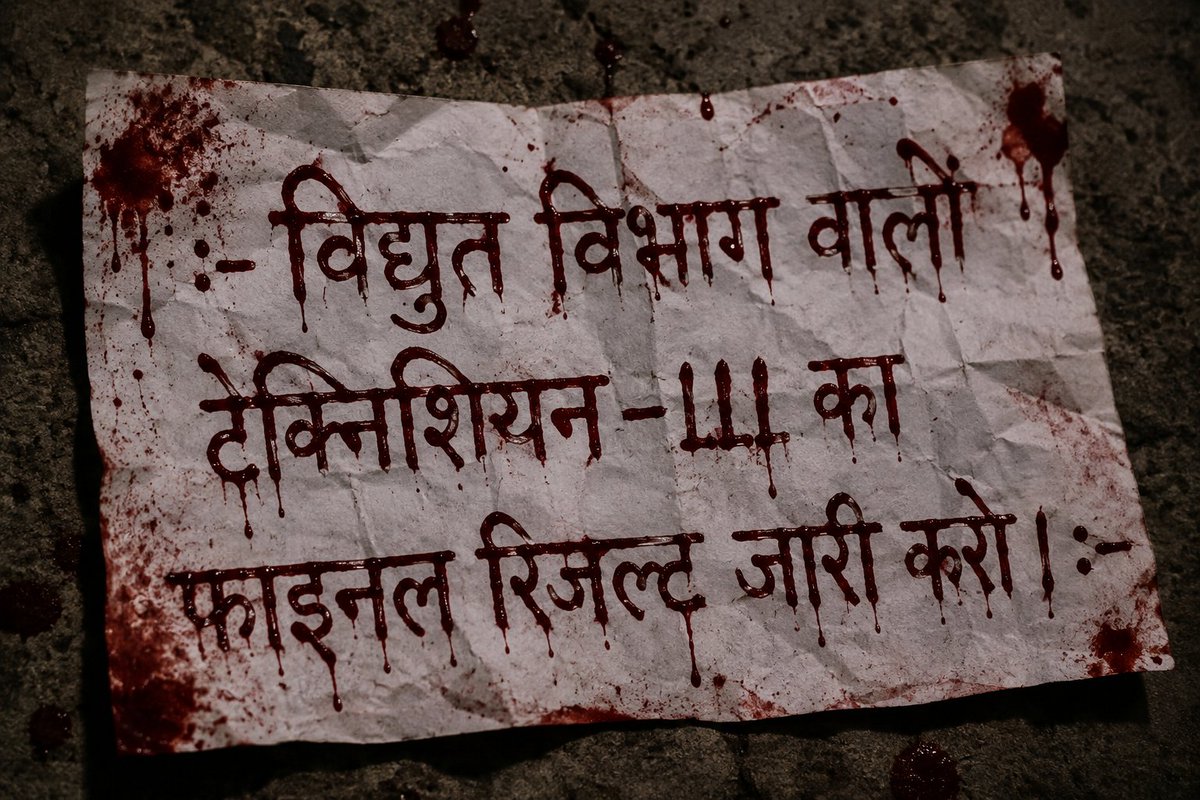 :- विद्युत विभाग वालो
टेक्निशियन - III का
फाइनल रिजल्ट जारी करो। :-